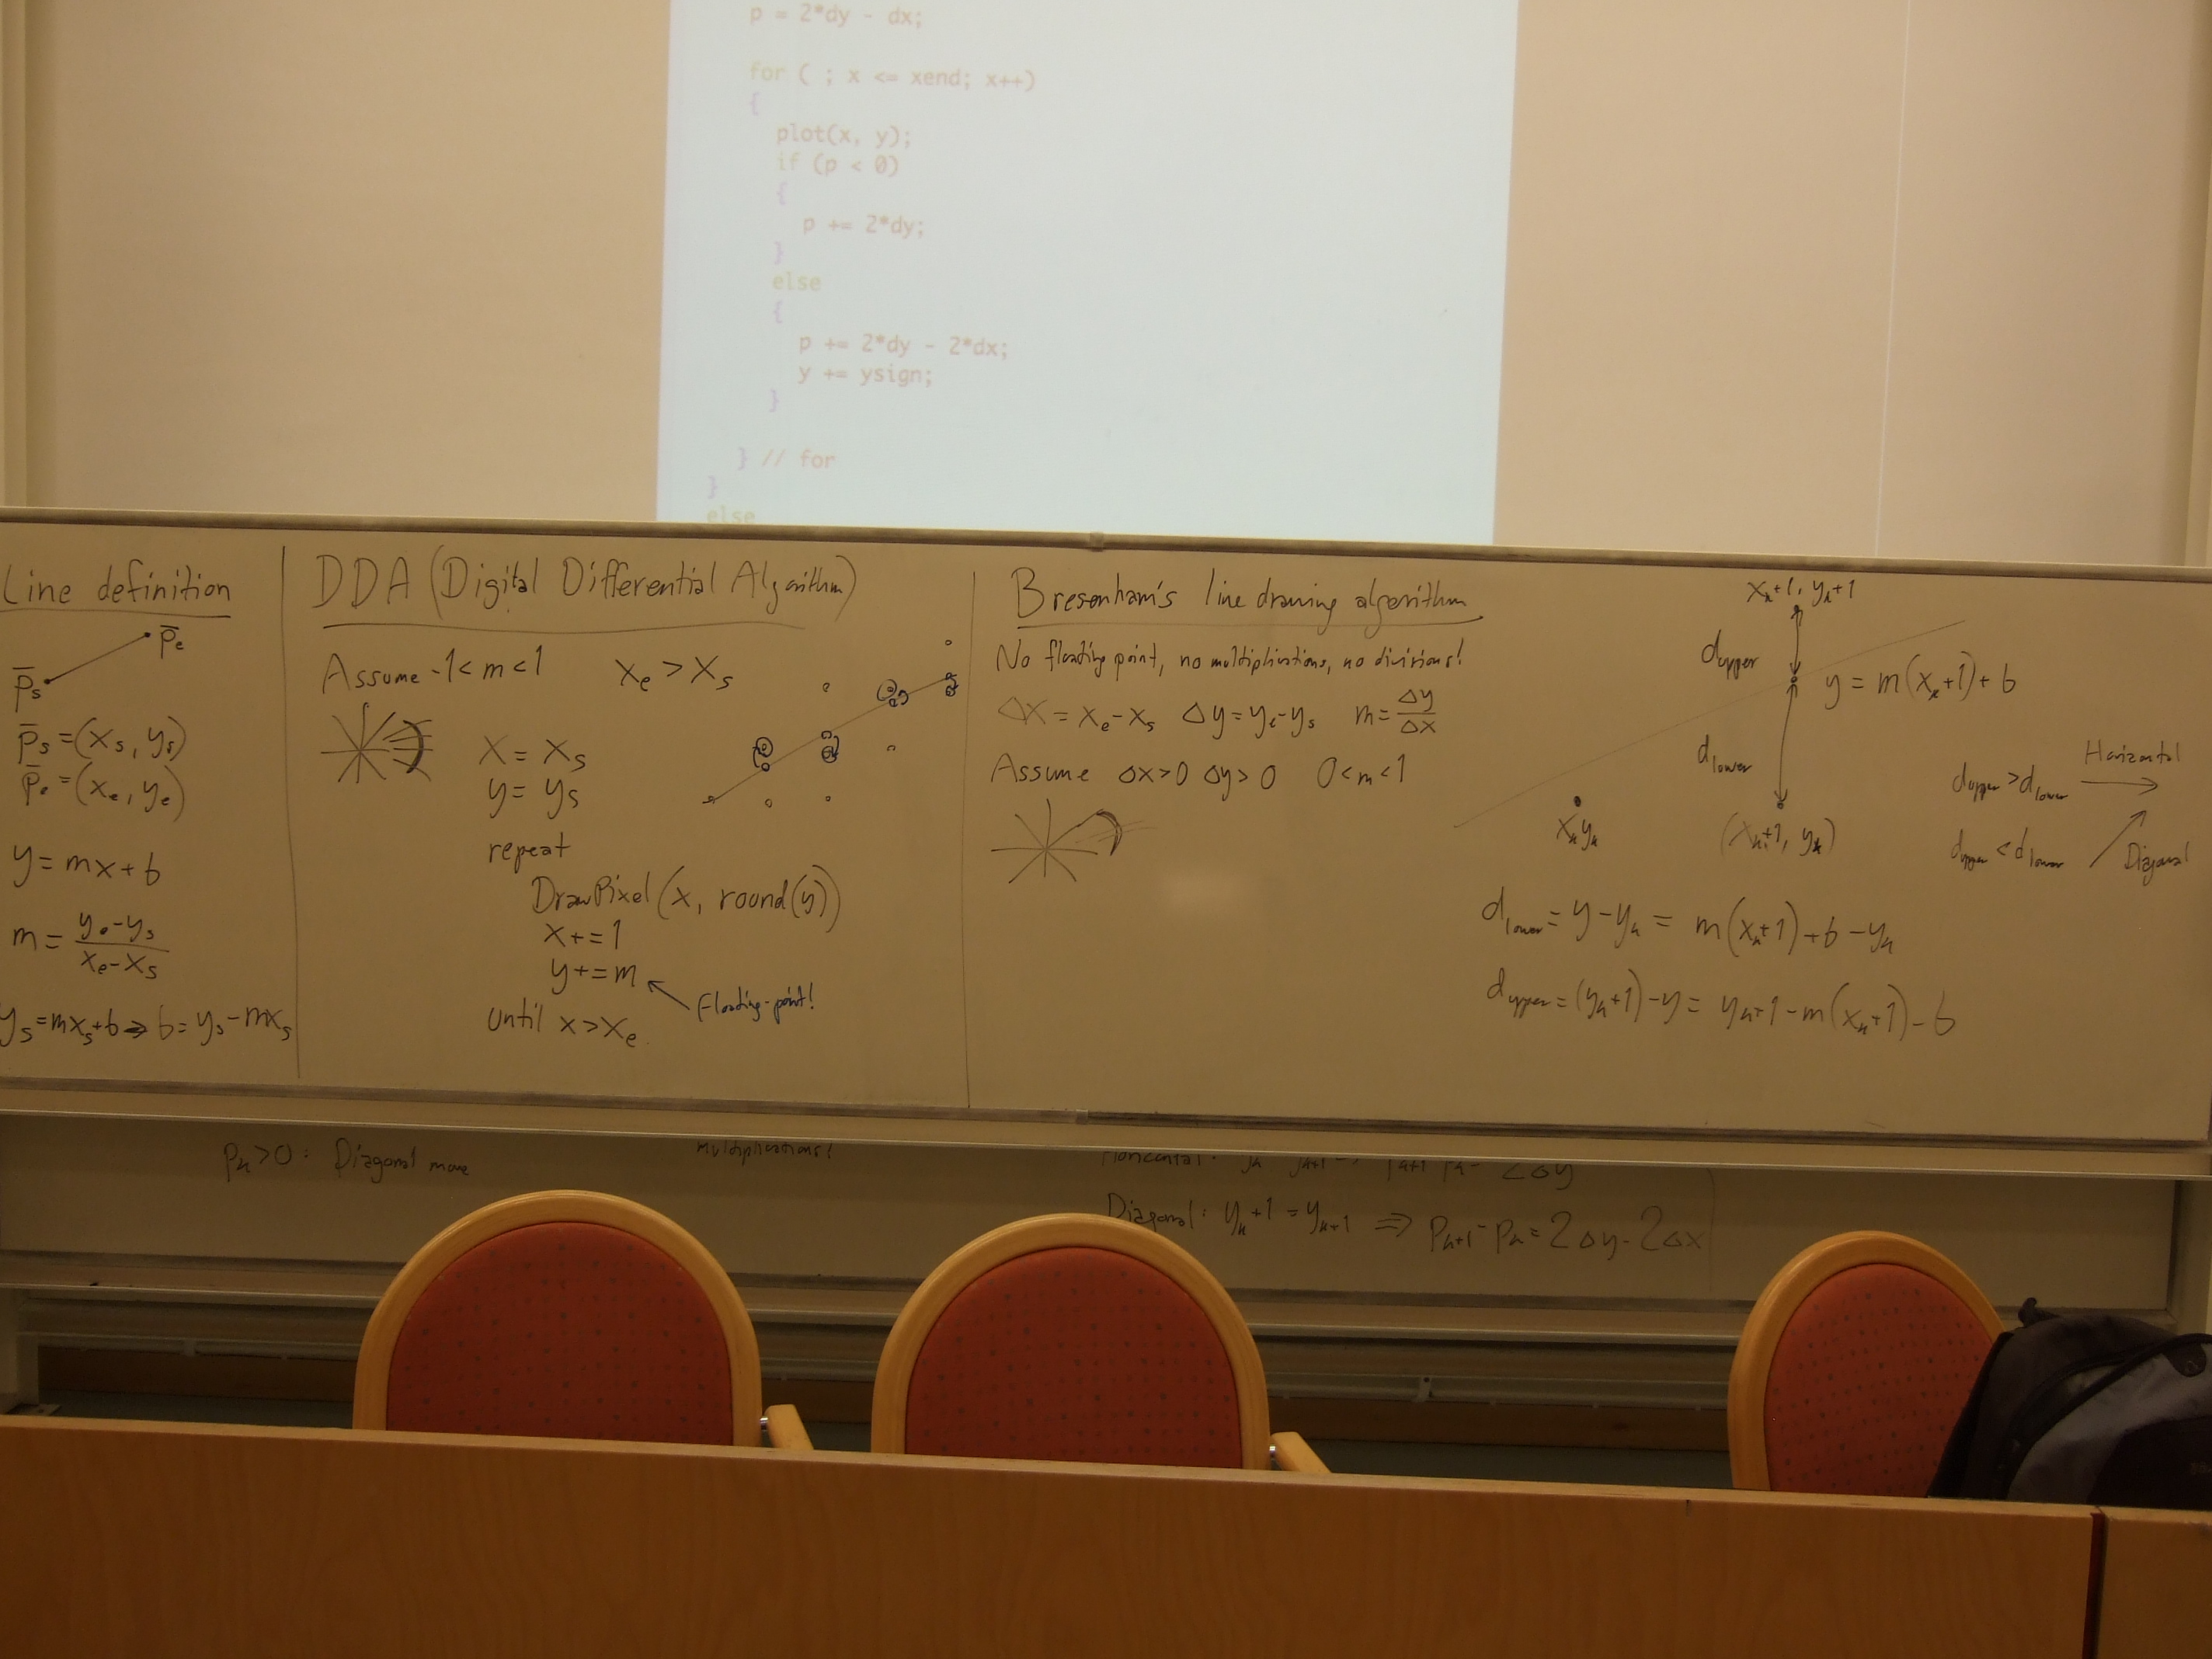 p = 2*dy - dx;
for ( ; x <= xend; x++)
{
plot(x, y);
if (p < 0)
{
p += 2*dy;
}
else
{
p += 2*dy - 2*dx;
y += ysign;
}
} // for
}
else
Line definition
p̄e
p̄s
p̄s = (xs, ys)
p̄e = (xe, ye)
y = mx + b
m = (ye - ys) / (xe - xs)
ys = mxs + b ⇒ b = ys - mxs
DDA (Digital Differential Algorithm)
Assume -1 < m < 1 xe > xs
x = xs
y = ys
repeat
DrawPixel(x, round(y))
x += 1
y += m
Floating-point!
until x > xe
Bresenham's line drawing algorithm
No floating point, no multiplications, no divisions!
Δx = xe - xs Δy = ye - ys m = Δy/Δx
Assume Δx > 0 Δy > 0 0 < m < 1
xk+1, yk+1
dupper
y = m(xk+1) + b
dlower
xk yk
(xk+1, yk)
dupper > dlower Horizontal
dupper < dlower Diagonal
dlower = y - yk = m(xk+1) + b - yk
dupper = (yk+1) - y = yk+1 - m(xk+1) - b
pk > 0: Diagonal move
multiplications!
Horizontal: 2Δy
Diagonal: yk+1 = yk+1 ⇒ pk+1 - pk = 2Δy - 2Δx